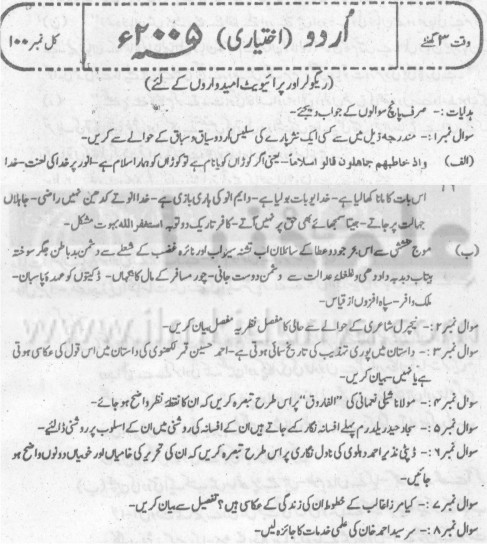 وقت ۳ گھنٹے
اُردو (اختیاری) ۲۰۰۵ء
کل نمبر ۱۰۰
(ریگولر اور پرائیویٹ امیدواروں کے لئے)
ہدایات:۔ صرف پانچ سوالوں کے جواب دیجئے۔
سوال نمبر ۱:۔ مندرجہ ذیل میں سے کسی ایک نثر پارے کی سلیس اُردو سیاق و سباق کے حوالے سے کریں۔
(الف) واذ خاطبهم جاهلون قالو اسلاماً۔ یعنی اگر کوڑاں کو یا نام ہے تو کوڑاں کو ہمارا سلام ہے۔ انو پر خدا کی لعنت۔ خدا
اس بات کا مانا کھالیا ہے۔ خدا یو بات بولیا ہے۔ دایم انو کی ہاری بازی ہے۔ خدا انوتے کدھین نہیں راضی۔ جاہلاں
جہالت پر جاتے۔ جیتا سمجھائے بھی حق پر نہیں آتے۔ کافر تاریک دو توبہ استغفر اللہ بہوت مشکل۔
(ب) موج بخشش سے اس بحر جود و عطا کے سائلان لب تشنہ سیراب اور نائرہ غضب کے شعلے سے دشمن بد باطن جگر سوختہ
بیتاب دبدبہ داد دہی و غلغلہ عدالت سے دشمن دوست جانی۔ چور مسافر کے مال کا نگہبان۔ ڈکیتوں کو عہدہ پاسبان۔
ملک وافر۔ سپاہ افزوں از قیاس۔
سوال نمبر ۲:۔ نیچرل شاعری کے حوالے سے حالی کا مفصل نظریہ مفصل بیان کریں۔
سوال نمبر ۳:۔ داستان میں پوری تہذیب کی تاریخ سمائی ہوتی ہے۔ احمد حسین قمر لکھنوی کی داستان میں اس قول کی عکاسی ہوتی
ہے یا نہیں۔ بیان کریں۔
سوال نمبر ۴:۔ مولانا شبلی نعمانی کی "الفاروق" پر اس طرح تبصرہ کریں کہ ان کا نقطۂ نظر واضح ہو جائے۔
سوال نمبر ۵:۔ سجاد حیدر یلدرم پہلے افسانہ نگار کہے جاتے ہیں ان کے افسانہ کی روشنی میں ان کے اسلوب پر روشنی ڈالئے۔
سوال نمبر ۶:۔ ڈپٹی نذیر احمد دہلوی کی ناول نگاری پر اس طرح تبصرہ کریں کہ ان کی تحریر کی خامیاں اور خوبیاں دونوں واضح ہو
جائیں۔
سوال نمبر ۷:۔ کیا مرزا غالب کے خطوط ان کی زندگی کے عکاسی ہیں؟ تفصیل سے بیان کریں۔
سوال نمبر ۸:۔ سرسید احمد خان کی علمی خدمات کا جائزہ لیں۔